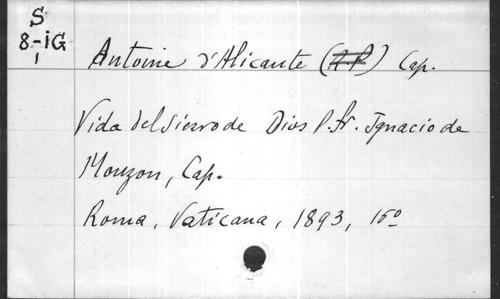 S
8-IG
1
Antoine d'Alicante (R.P.) Cap.
Vida del Siervo de Dios P. Fr. Ignacio de
Monzon, Cap.
Roma, Vaticana, 1893, 16º